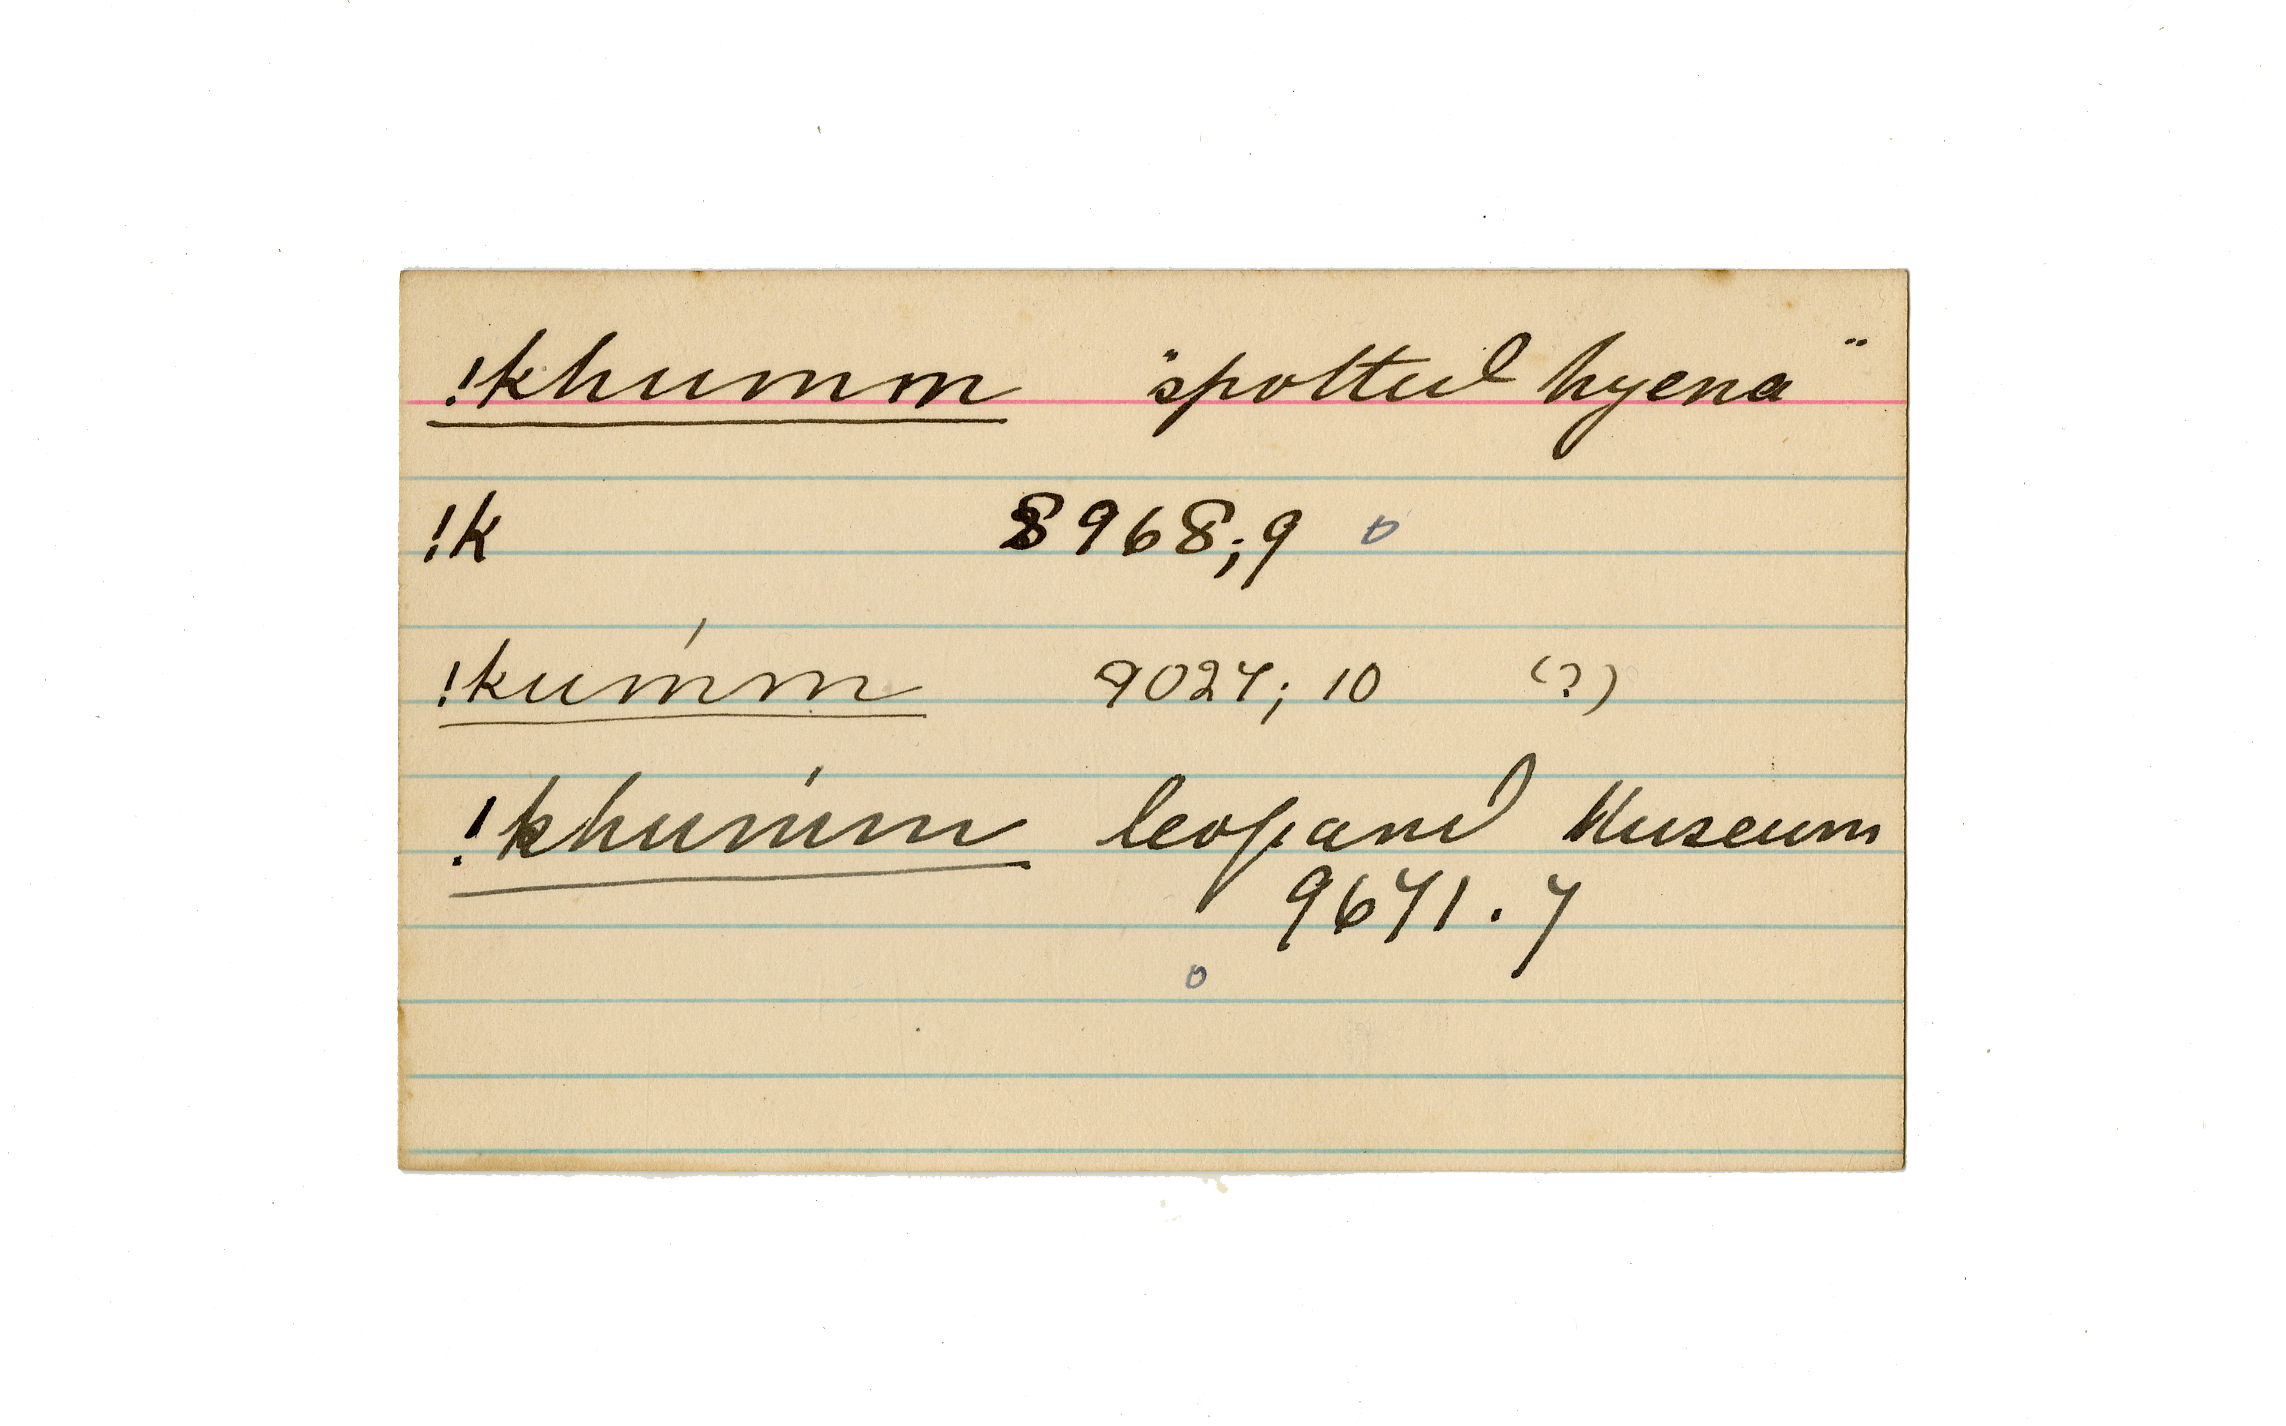 !khumm "spotted hyena"
!k 8968; 9 o
!kum̍m 9027; 10 (?)
!khum̍m leopard Museum
9671.7
o